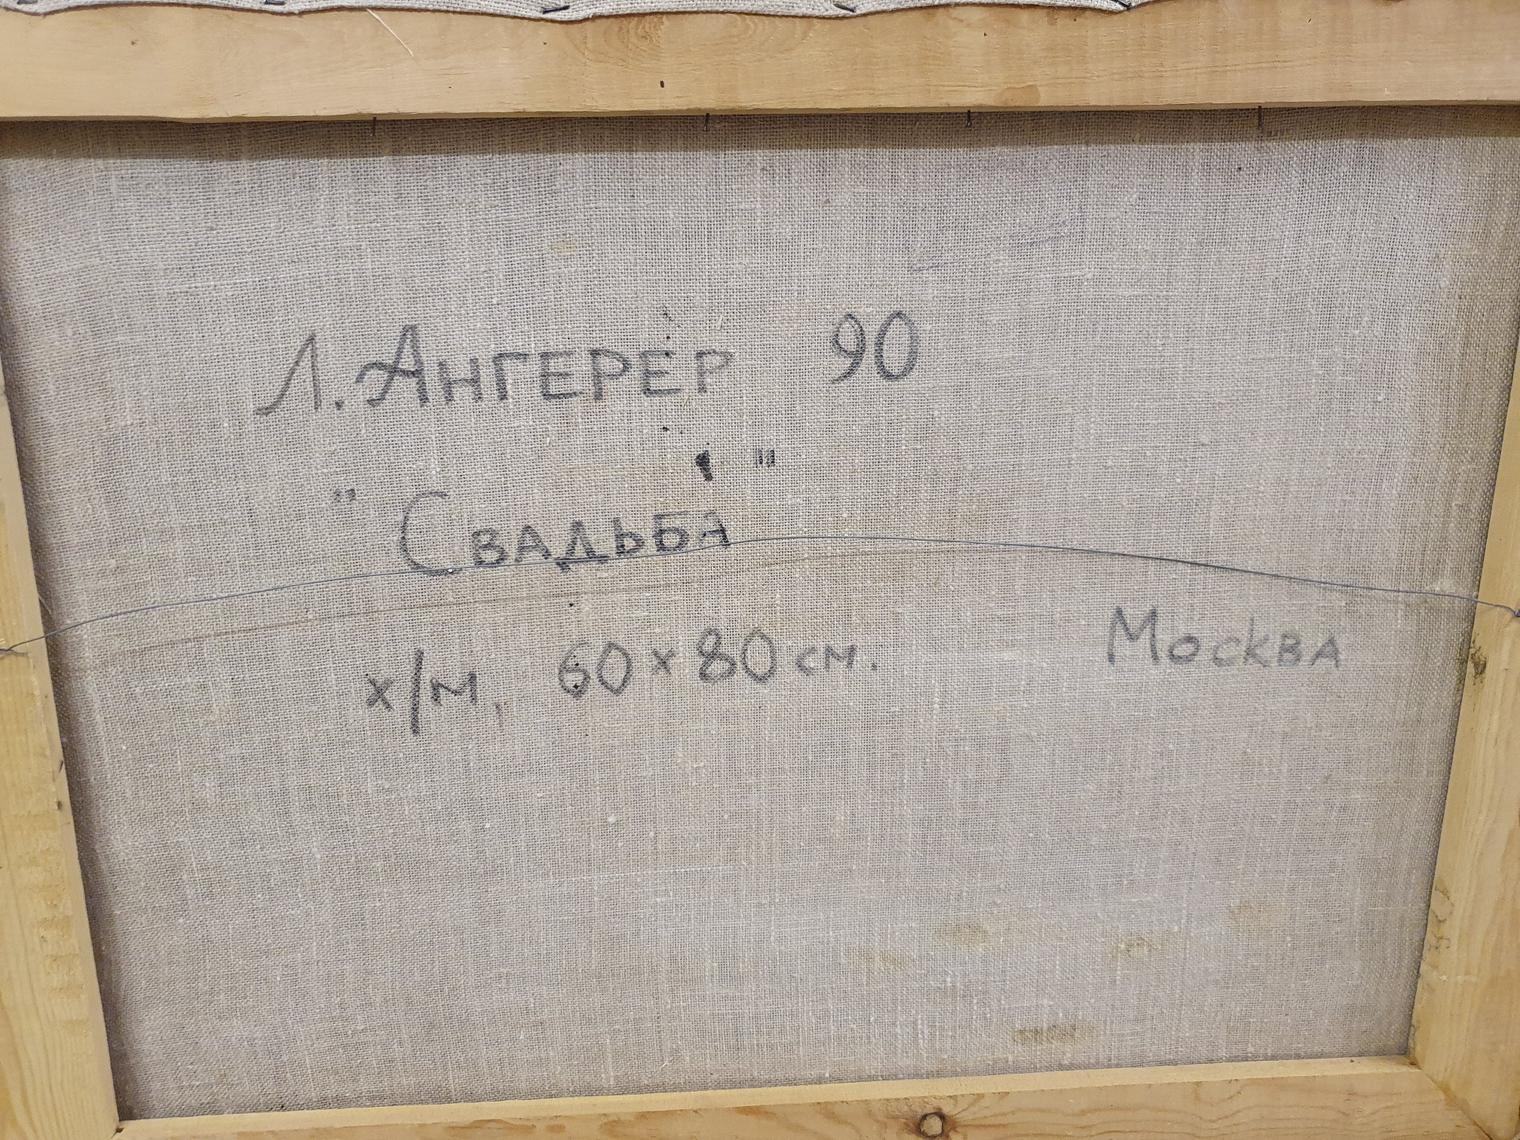 Л. Ангерер 90
"Свадьба"
х/м, 60 x 80 см.
Москва